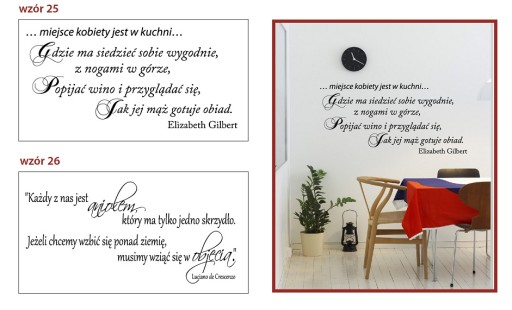 wzór 25
... miejsce kobiety jest w kuchni...
Gdzie ma siedzieć sobie wygodnie,
z nogami w górze,
Popijać wino i przyglądać się,
Jak jej mąż gotuje obiad.
Elizabeth Gilbert
wzór 26
"Każdy z nas jest aniołem,
który ma tylko jedno skrzydło.
Jeżeli chcemy wzbić się ponad ziemię,
musimy wziąć się w objęcia."
Luciano de Crescenzo
... miejsce kobiety jest w kuchni...
Gdzie ma siedzieć sobie wygodnie,
z nogami w górze,
Popijać wino i przyglądać się,
Jak jej mąż gotuje obiad.
Elizabeth Gilbert